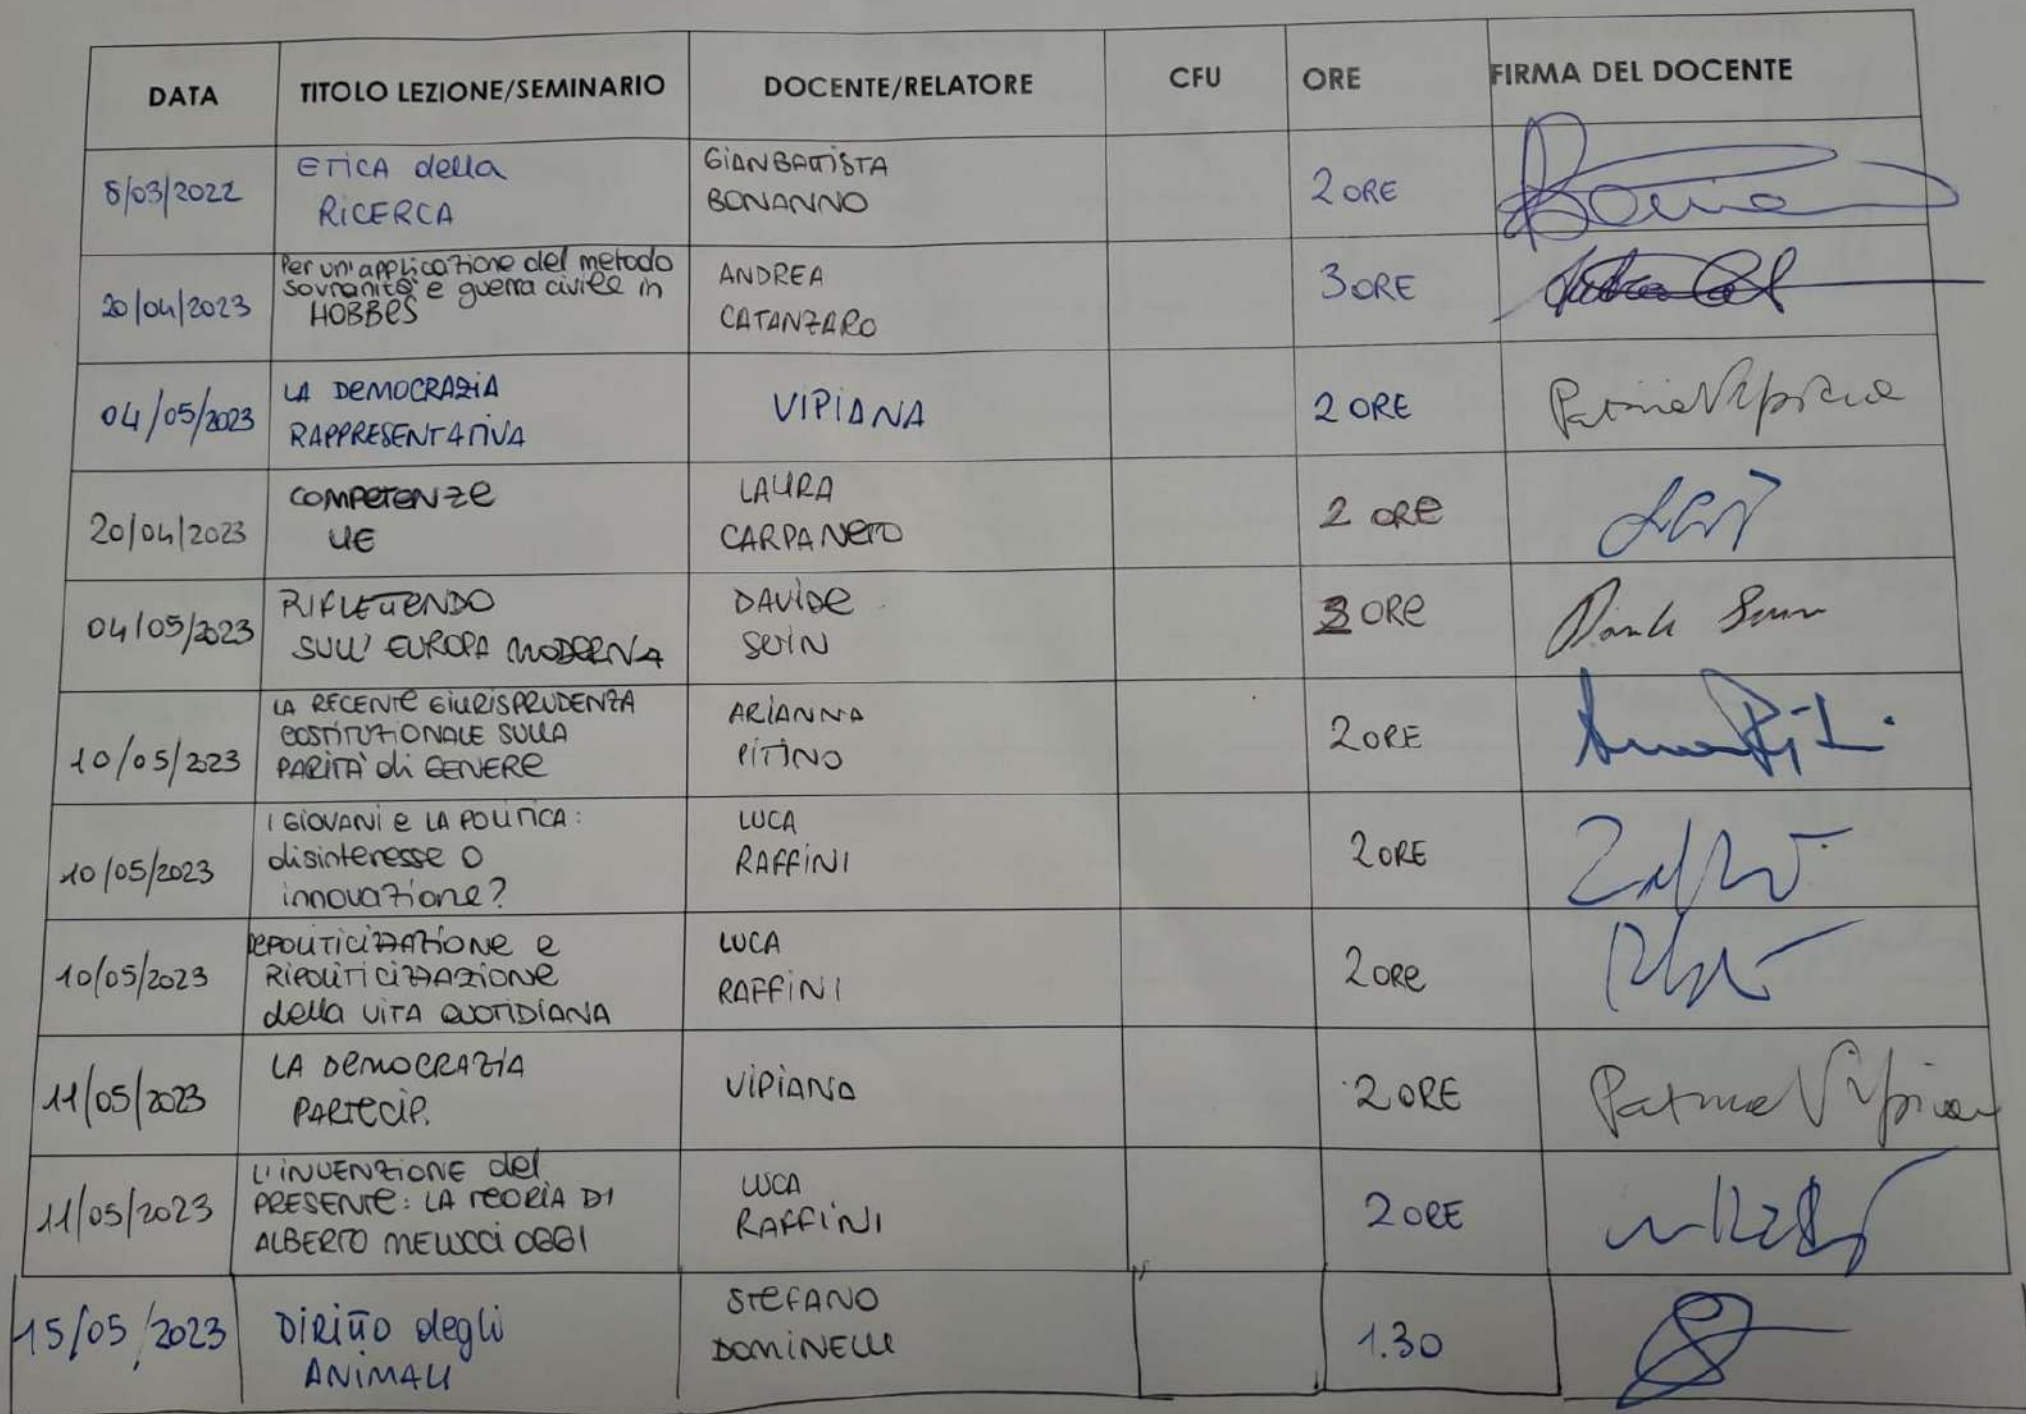 DATA TITOLO LEZIONE/SEMINARIO DOCENTE/RELATORE CFU ORE FIRMA DEL DOCENTE
8/03/2022
ETICA della
RICERCA
GIANBATTISTA
BONANNO
2 ORE
20/04/2023
Per un'applicazione del metodo
sovranità e guerra civile in
HOBBES
ANDREA
CATANZARO
3 ORE
04/05/2023
LA DEMOCRAZIA
RAPPRESENTATIVA
VIPIANA
2 ORE
Patrizia Vipiana
20/04/2023
COMPETENZE
UE
LAURA
CARPANETO
2 ORE
04/05/2023
RIFLETTENDO
SULL' EUROPA MODERNA
DAVIDE
SUIN
3 ORE
10/05/223
LA RECENTE GIURISPRUDENZA
COSTITUZIONALE SULLA
PARITÀ di GENERE
ARIANNA
PITINO
2 ORE
10/05/2023
I GIOVANI e LA POLITICA:
disinteresse o
innovazione?
LUCA
RAFFINI
2 ORE
10/05/2023
DEPOLITICIZZAZIONE e
RIPOLITICIZZAZIONE
della VITA QUOTIDIANA
LUCA
RAFFINI
2 ORE
11/05/2023
LA DEMOCRAZIA
PARTECIP.
VIPIANA
2 ORE
Patrizia Vipiana
11/05/2023
L'INVENZIONE del
PRESENTE: LA TEORIA DI
ALBERTO MELUCCI OGGI
LUCA
RAFFINI
2 ORE
15/05/2023
DIRITTO degli
ANIMALI
STEFANO
DOMINELLI
1.30